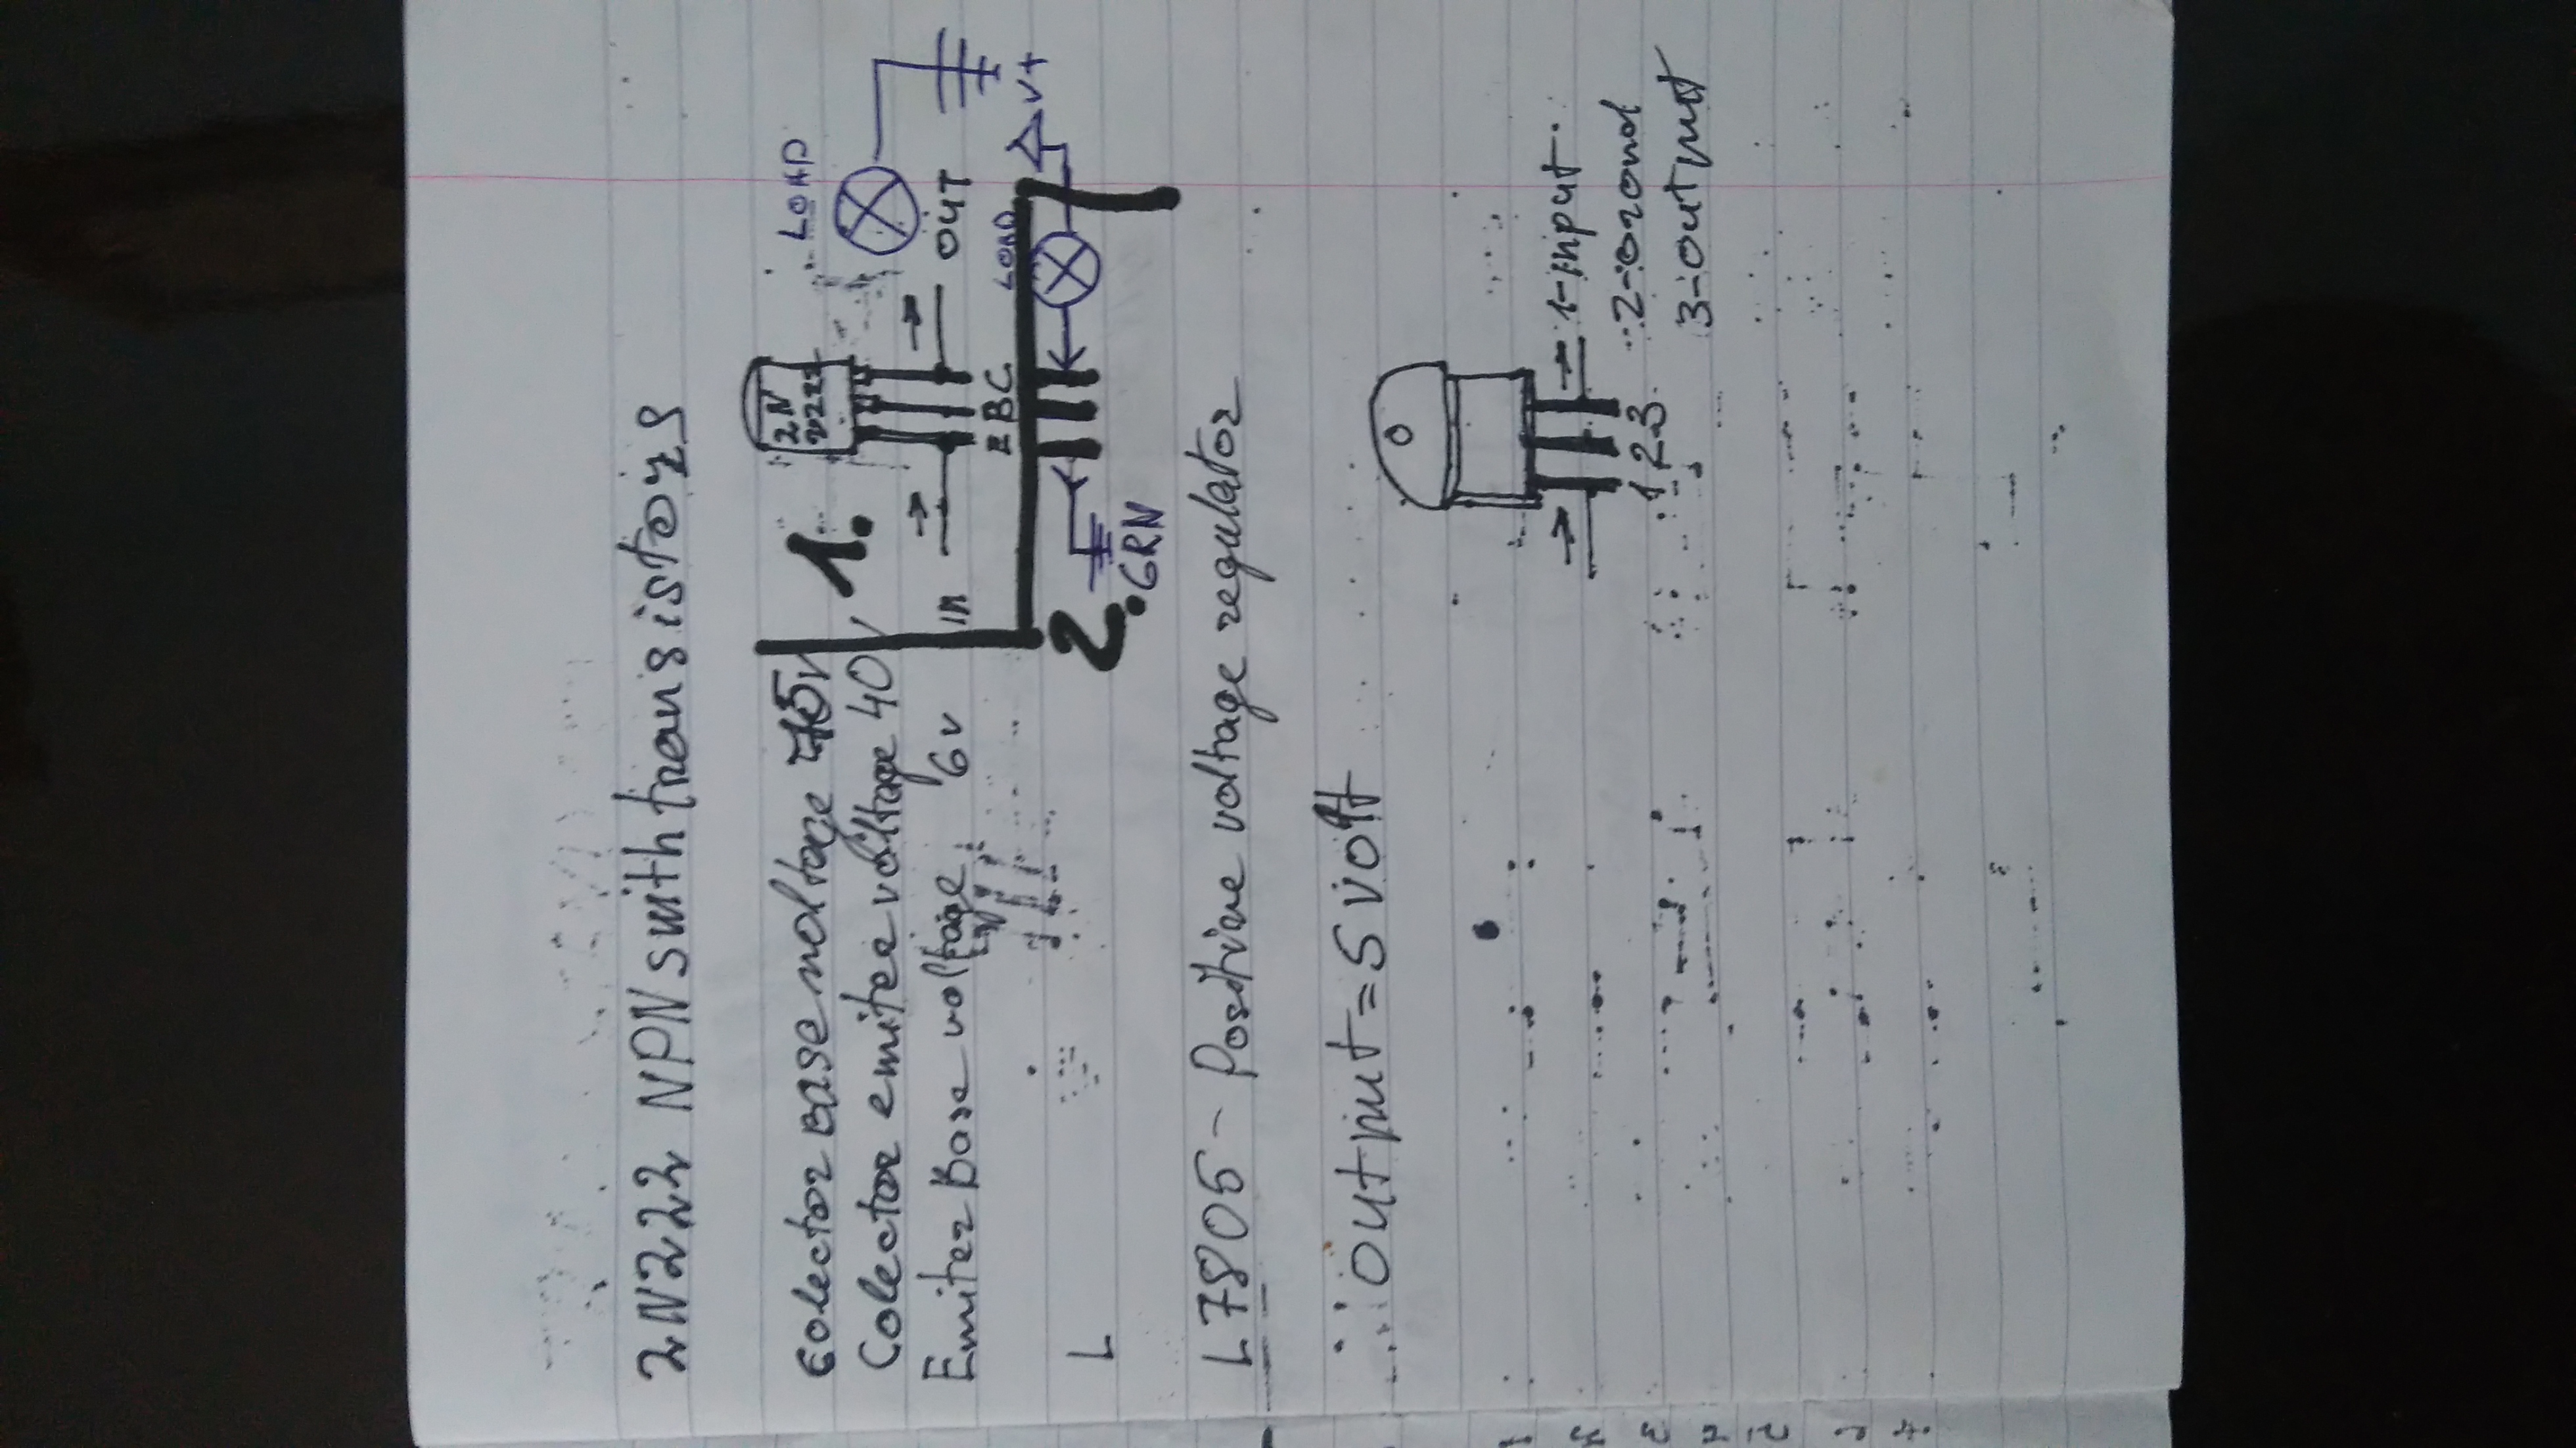 2N222 NPN swith transistors
Colector BASE voltage 75v
Colector emiter voltage 40v
Emiter Base voltage 6v
1.
2N
2222
LOAD
in
OUT
E B C
LOAD
V+
2.
GRN
L
L7805 - Positive voltage regulator
output = 5 volt
1 2 3
1-input
2-ground
3-output